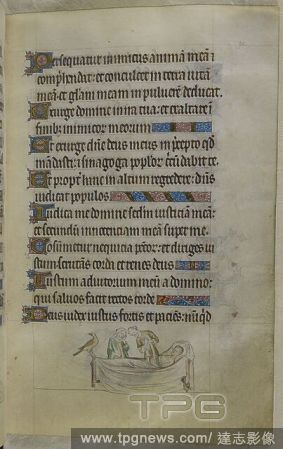 Persequatur inimicus animā meā ⁊
comp̄hendat: et conculcet in terra uitā
meā: et gl̄am meam in puluerē deducat.
Exurge domine in ira tua: et exaltare ī
finib; inimicor meorum
Et exurge dn̄e deus meus in p̄cepto qd̄
mandasti: ⁊ sinagoga poplor̄ c̄cūdabit te.
Et propt̄ hanc in altum regredere: dn̄s
iudicat populos
Iudica me domine scd̄m iusticiā meā:
et secundū innocentiam meā super me.
Cōsumetur nequicia pc̄tor̄: et diriges iu
stum scrutās corda et renes deus
Iustum adiutorium meū a domino:
qui saluos facit rectos corde
Deus iudex iustus fortis et paciēs: nūqd̄
TPG
www.tpgnews.com/ 達志影像